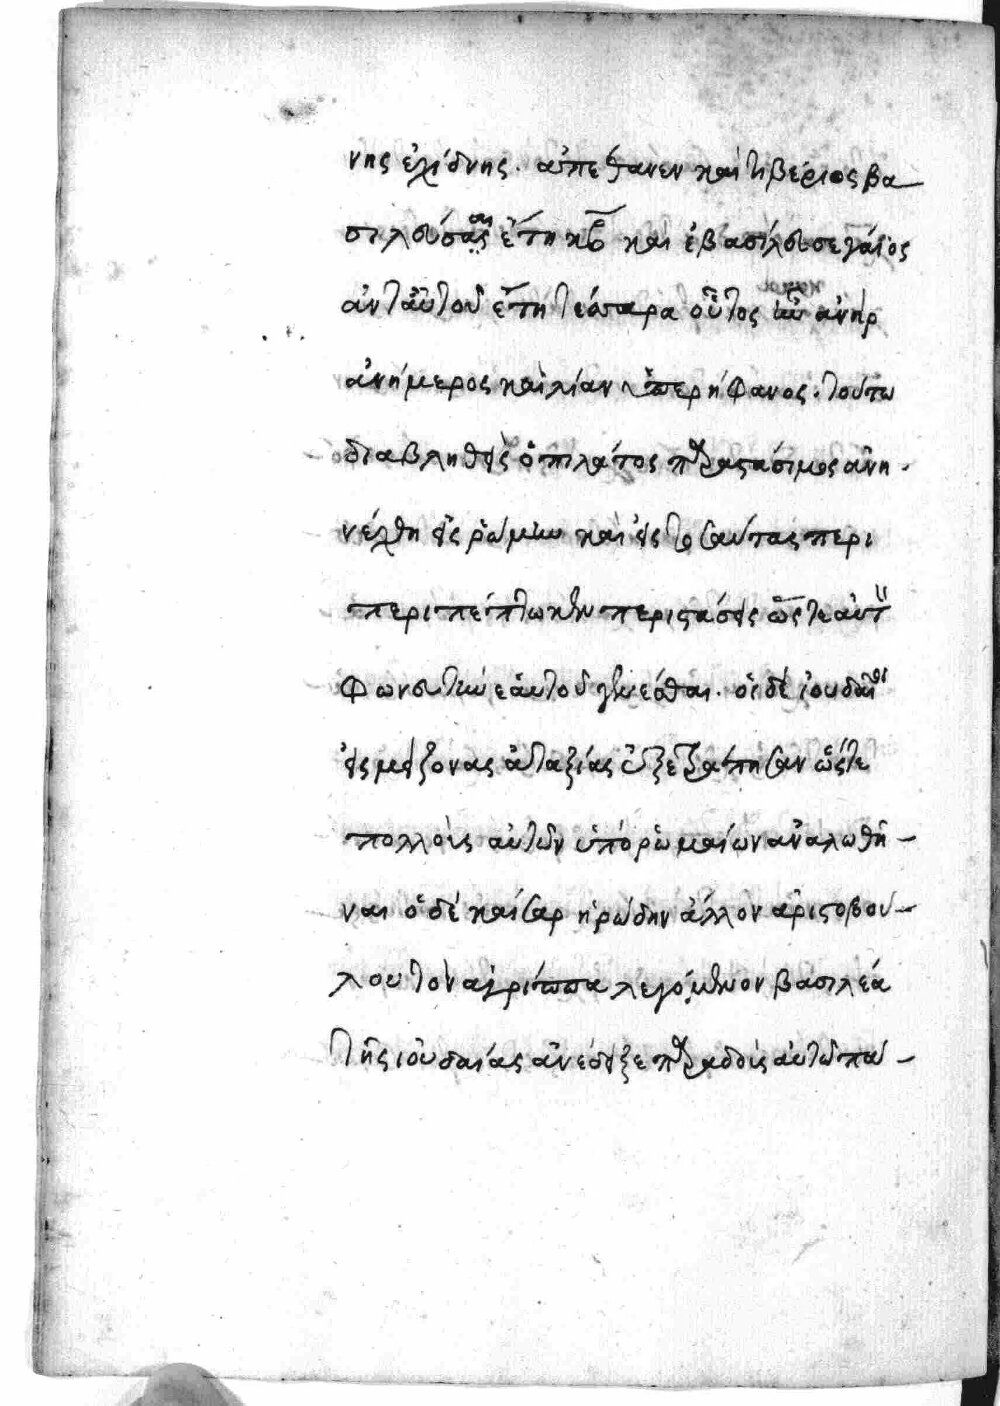 νης ἐχίδνης. ἀπέθανεν καὶ τιβέριος βα
σιλεύσας ἔτη κβ καὶ ἐβασίλευσε γάϊος
ἀντ αὐτοῦ ἔτη τέσσαρα οὗτος ἀνὴρ
ἀνήμερος καὶ λίαν ὑπερήφανος. τούτω
διαβληθεὶς ὁ πιλάτος παραστάσιμος ἀνη
νέχθη εἰς ῥώμην καὶ εἰς τοσαύτας περι
περιπέπτωκεν περιστάσεις ὥστε αὐτ
φωνευτὴν ἑαυτοῦ γενέσθαι. οἱ δὲ ἰουδαῖοι
εἰς μείζονας ἀταξίας ἐξετράπησαν ὥστε
πολλοὺς αὐτῶν ὑπὸ ῥωμαίων ἀναλωθῆ
ναι ὁ δὲ καίσαρ ἡρώδην ἄλλον ἀριστοβού
λου τὸν ἀγρίππα λεγόμενον βασιλέα
τῆς ἰουδαίας ἀνέδειξε παραδοὺς αὐτῶ πά